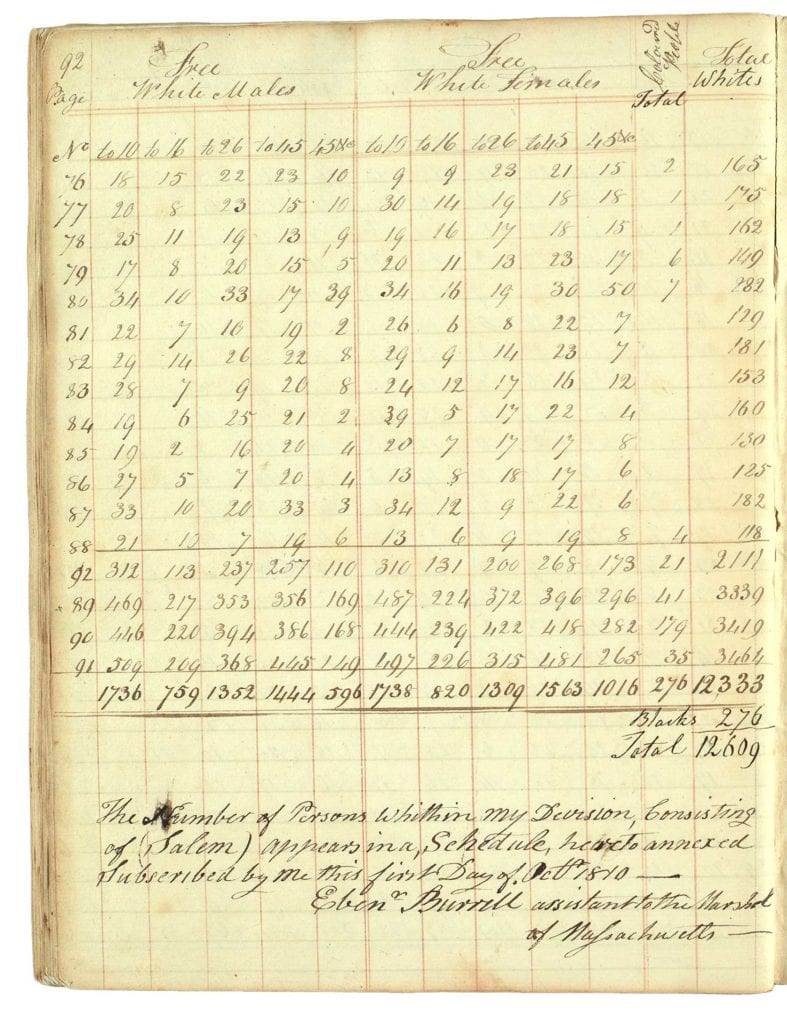 92 Free Free Coloured People Total
Page White Males White Females Total Whites
No to 10 to 16 to 26 to 45 45 &c to 10 to 16 to 26 to 45 45 &c
76 18 15 22 23 10 9 9 23 21 15 2 165
77 20 8 23 15 10 30 14 19 18 18 1 175
78 25 11 19 13 9 19 16 17 18 15 1 162
79 17 8 20 15 5 20 11 13 23 17 6 149
80 34 10 33 17 39 34 16 19 30 50 7 282
81 22 7 10 19 2 26 6 8 22 7 129
82 29 14 26 22 8 29 9 14 23 7 181
83 28 7 9 20 8 24 12 17 16 12 153
84 19 6 25 21 2 39 5 17 22 4 160
85 19 2 16 20 4 20 7 17 17 8 130
86 27 5 7 20 4 13 8 18 17 6 125
87 33 10 20 33 3 34 12 9 22 6 182
88 21 10 7 19 6 13 6 9 19 8 4 118
92 312 113 237 257 110 310 131 200 268 173 21 2111
89 469 217 353 356 169 487 224 372 396 296 41 3339
90 446 220 394 386 168 444 239 422 418 282 179 3419
91 509 209 368 445 149 497 226 315 481 265 35 3464
1736 759 1352 1444 596 1738 820 1309 1563 1016 276 12333
Blacks 276
Total 12609
The Number of Persons Whithin my Devision, Consisting
of (Salem) appears in a, Schedule, hearto annexed
Subscribed by me this first Day of Octr 1810 —
Ebenr Burrill assistant to the Marshal
of Massachusetts —